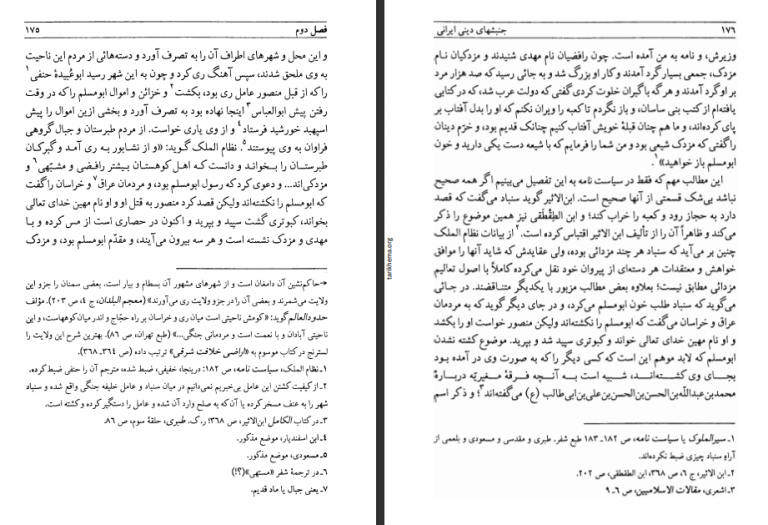 فصل دوم
۱۷۵
و این محل و شهرهای اطراف آن را به تصرف آورد و دسته‌هائی از مردم این ناحیت
به وی ملحق شدند، سپس آهنگ ری کرد و چون به این شهر رسید ابوعُبیدهٔ حنفی۱
را که از قبل منصور عامل ری بود، بکشت۲ و خزائن و اموال ابومسلم را که در وقت
رفتن پیش ابوالعباس۳ اینجا نهاده بود به تصرف آورد و بخشی ازین اموال را پیش
اسپهبد خورشید فرستاد۴ و از وی یاری خواست. از مردم طبرستان و جبال گروهی
فراوان به وی پیوستند۵. نظام الملک گوید: «و از نشابور به ری آمد و گبرکان
طبرستان را بخواند و دانست که اهل کوهستان بیشتر رافضی و مشبّهی۶ و
مزدکی‌اند... و دعوی کرد که رسول ابومسلم بود، و مردمان عراق۷ و خراسان را گفت
که ابومسلم را نکشته‌اند ولیکن قصد کرد منصور به قتل او و او نام مهین خدای تعالی
بخواند، کبوتری گشت سپید و بپرید و اکنون در حصاری است از مس کرده و با
مهدی و مزدک نشسته است و هر سه بیرون می‌آیند، و مقدّم ابومسلم بود، و مزدک
→حاکم‌نشین آن دامغان است و از شهرهای مشهور آن بسطام و بیار است. بعضی سمنان را جزو این
ولایت می‌شمرند و بعضی آن را در جزو ولایت ری می‌آورند» (معجم البلدان، ج ٤، ص ۲۰۳). مؤلف
حدودالعالم گوید: «کومش ناحیتی است میان ری و خراسان بر راه حجّاج و اندر میان کوههاست، و این
ناحیتی آبادان و با نعمت است و مردمانی جنگی...» (طبع تهران، ص ۸۶). بهترین شرح این ولایت را
لسترنج در کتاب موسوم به «اراضی خلافت شرقی» ترتیب داده (ص ۳۶٤ـ۳۶۸).
۱ـ نظام الملک، سیاست نامه، ص ۱۸۲: درینجا، خفیفی، ضبط شده، مترجم آن را حنفی ضبط کرده.
۲ـ از کیفیت کشتن این عامل بی‌خبریم نمی‌دانیم در میان سنباد و عامل خلیفه جنگی واقع شده و سنباد
شهر را به عنف مسخر کرده یا آن‌که به صلح وارد آن شده و عامل را دستگیر کرده و کشته است.
۳ـ در کتاب الکامل ابن‌الاثیر، ص ۳۶۸؛ ر.ک. طبری، حلقهٔ سوم، ص ۸۶.
٤ـ ابن اسفندیار، موضع مذکور.
۵ـ مسعودی، موضع مذکور.
۶ـ در ترجمهٔ شفر «مستهی»(؟!)
۷ـ یعنی جبال یا ماد قدیم.
tarikhema.org
۱۷۶
جنبشهای دینی ایرانی
وزیرش، و نامه به من آمده است. چون رافضیان نام مهدی شنیدند و مزدکیان نام
مزدک، جمعی بسیار گرد آمدند و کار او بزرگ شد و به جائی رسید که صد هزار مرد
بر او گرد آمدند و هر گه با گبران خلوت کردی گفتی که دولت عرب شد، که در کتابی
یافته‌ام از کتب بنی ساسان، و باز نگردم تا کعبه را ویران نکنم که او را بدل آفتاب بر
پای کرده‌اند، و ما هم چنان قبلهٔ خویش آفتاب کنیم چنانک قدیم بود، و خرم دینان
را گفتی که مزدک شیعی بود و من شما را فرمایم که با شیعه دست یکی دارید و خون
ابومسلم باز خواهید»۱.
این مطالب مهم که فقط در سیاست نامه به این تفصیل می‌بینیم اگر همه صحیح
نباشد بی‌شک قسمتی از آنها صحیح است. ابن‌الاثیر گوید سنباد می‌گفت که قصد
دارد به حجاز رود و کعبه را خراب کند؛ و ابن الطِقْطَقی نیز همین موضوع را ذکر
می‌کند و ظاهراً آن را از تألیف ابن الاثیر اقتباس کرده است.۲ از بیانات نظام الملک
چنین بر می‌آید که سنباد هر چند مزدائی بوده، ولی عقایدش که شاید آنها را موافق
خواهش و معتقدات هر دسته‌ای از پیروان خود نقل می‌کرده کاملاً با اصول تعالیم
مزدائی مطابق نیست؛ بعلاوه بعض مطالب مزبور با یکدیگر متناقضند. در جائی
می‌گوید که سنباد طلب خون ابومسلم می‌کرد، و در جای دیگر گوید که به مردمان
عراق و خراسان می‌گفت که ابومسلم را نکشته‌اند ولیکن منصور خواست او را بکشد
و او نام مهین خدای تعالی خواند و کبوتری سپید شد و بپرید. موضوع کشته نشدن
ابومسلم که لابد موهم این است که کسی دیگر را که به صورت وی در آمده بود
بجای وی کشته‌اند، شبیه است به آنچه فرقهٔ مغیریّه دربارهٔ
محمدبن‌عبدالله‌بن‌الحسن‌بن‌الحسن‌بن‌علی‌بن‌ابی‌طالب (ع) می‌گفته‌اند۳؛ و ذکر اسم
۱ـ سیرالملوک یا سیاست نامه، ص ۱۸۲ـ۱۸۳ طبع شفر. طبری و مقدسی و مسعودی و بلعمی از
آراءِ سنباد چیزی ضبط نکرده‌اند.
۲ـ ابن الاثیر، ج ۶، ص ۳۶۸، ابن الطقطقی، ص ۲۰۲.
۳ـ اشعری، مقالات الاسلامیین، ص ۶ـ۹